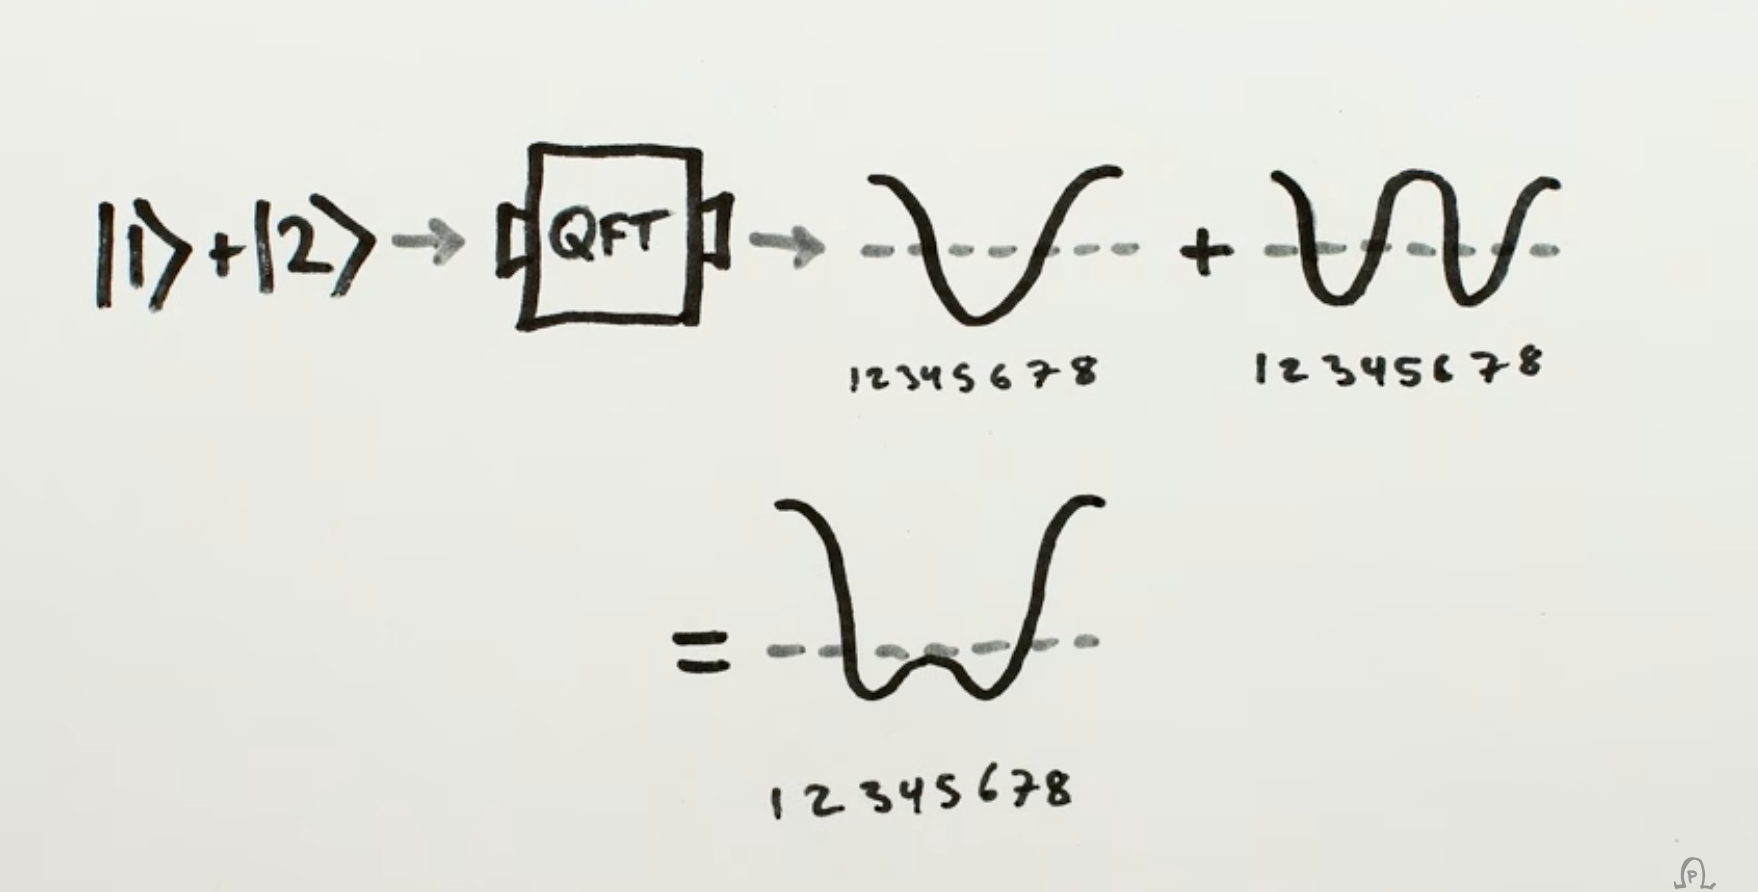 |1⟩+|2⟩ → QFT → +
12345678 12345678
=
12345678
P